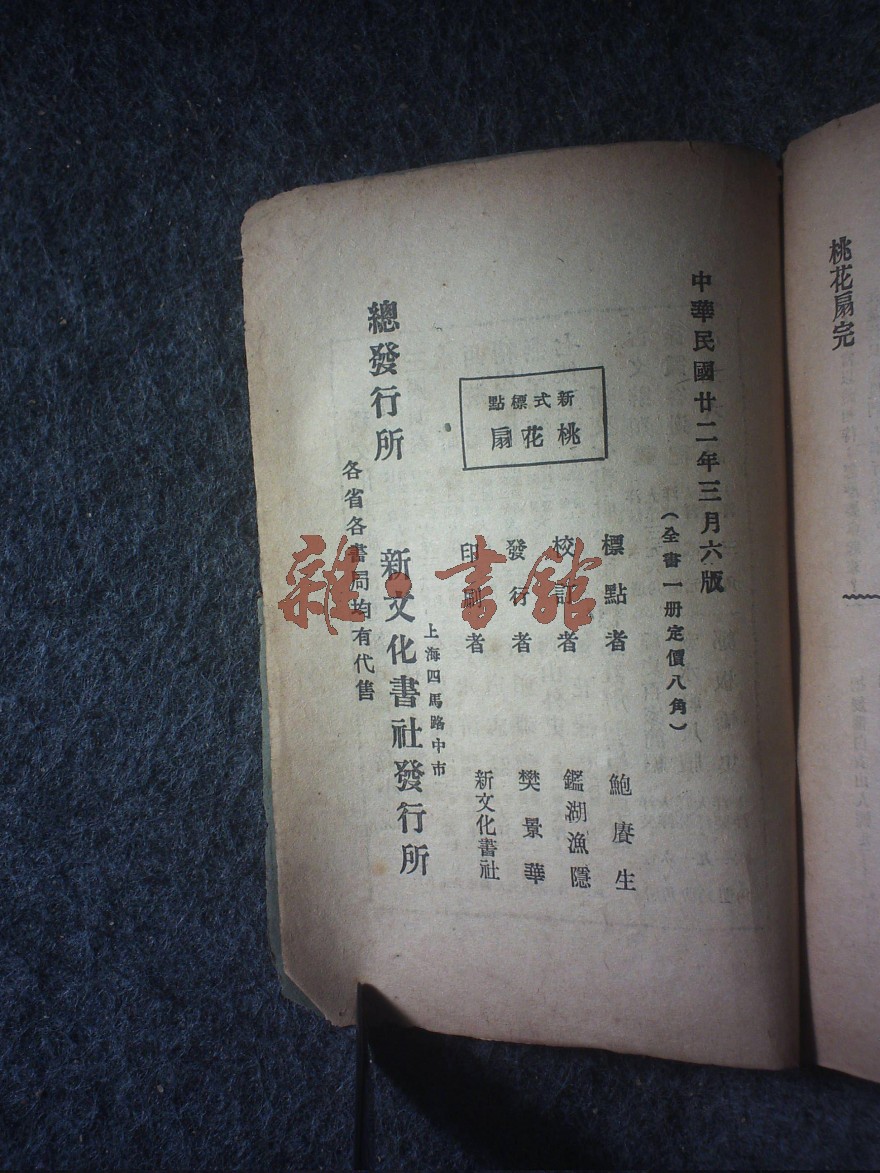 桃花扇完
中華民國廿二年三月六版
(全書一册定價八角)
新式標點
桃花扇
標點者 鮑賡生
校訂者 鑑湖漁隱
發行者 樊景華
印刷者 新文化書社
上海四馬路中市
總發行所 新文化書社發行所
各省各書局均有代售
雜·書館